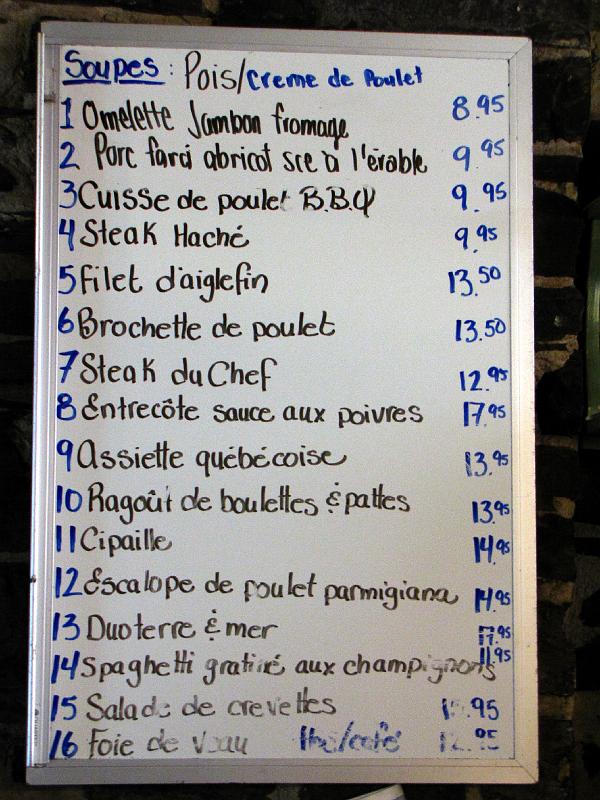 Soupes : Pois/Creme de Poulet
1 Omelette Jambon fromage 8.95
2 Porc farci abricot sce à l'érable 9.95
3 Cuisse de poulet B.B.Q 9.95
4 Steak Haché 9.95
5 Filet d'aiglefin 13.50
6 Brochette de poulet 13.50
7 Steak du Chef 12.95
8 Entrecôte sauce aux poivres 17.95
9 Assiette québécoise 13.95
10 Ragoût de boulettes & pattes 13.95
11 Cipaille 14.95
12 Escalope de poulet parmigiana 14.95
13 Duo terre & mer 17.95
14 Spaghetti gratiné aux champignons 11.95
15 Salade de crevettes
16 Foie de veau thé/café